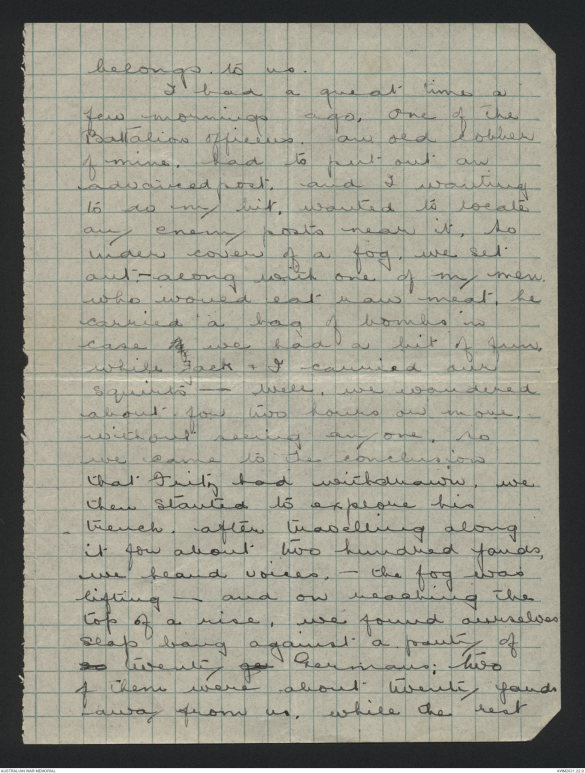 belongs to us.
I had a great time a
few mornings ago, One of the
Battalion officers, an old cobber
of mine, had to put out an
advanced post, and I wanting
to do my bit, wanted to locate
any enemy posts near it, so
under cover of a fog, we set
out - along with one of my men
who would eat raw meat, he
carried a bag of bombs in
case we had a bit of fun,
while Jack & I carried our
squirts — well, we wandered
about for two hours or more,
without seeing anyone, so
we came to the conclusion
that Fritz had withdrawn, we
then started to explore his
trench, after travelling along
it for about two hundred yards,
we heard voices, - the fog was
lifting - and on reaching the
top of a rise, we found ourselves
slap bang against a party of
twenty Germans; two
of them were about twenty yards
away from us, while the rest
AUSTRALIAN WAR MEMORIAL